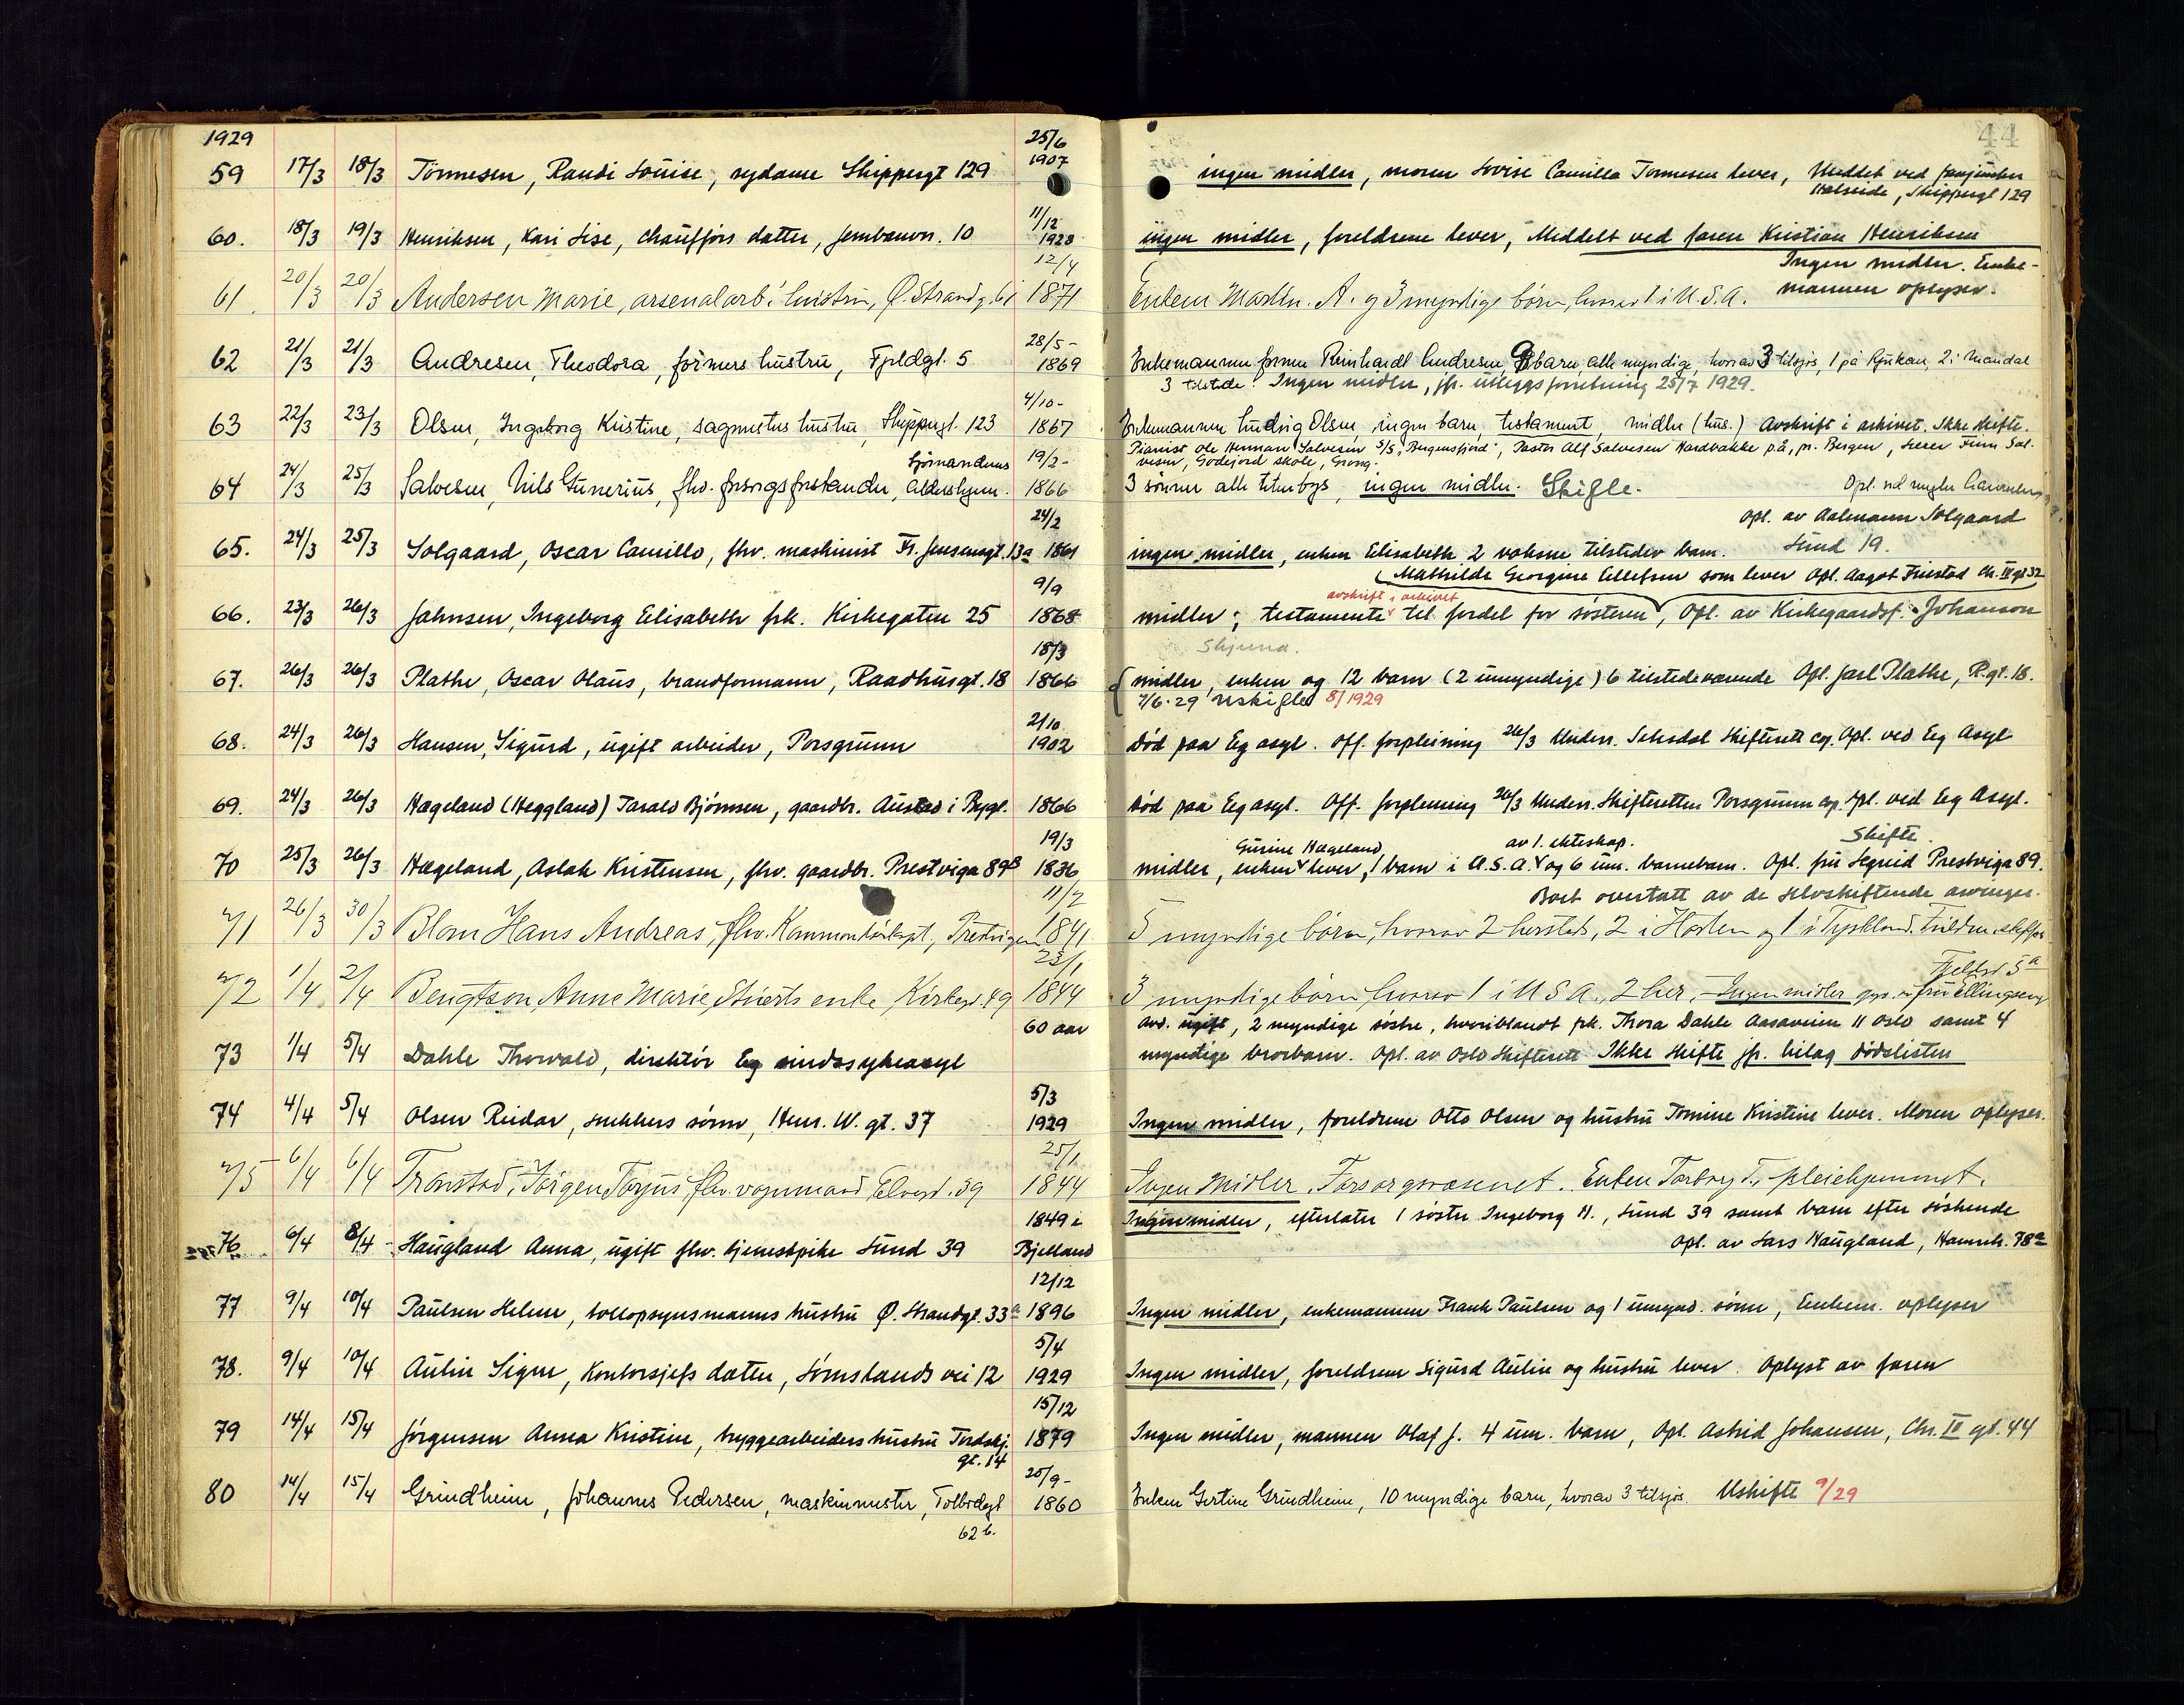 44
1929
59 17/3 18/3 Tönnesen, Randi Louise, sydame Skippergt 129 25/6 1907
ingen midler, moren Lovise Camilla Tönnesen lever, Meddelt ved
Skippergt 129
60. 18/3 19/3 Henriksen, Kari Lise, chaufførs datter, Jernbanvn. 10 11/12 1928
ingen midler, foreldrene lever, Meddelt ved faren Kristian Henriksen
61. 20/3 20/3 Andersen Marie, arsenalarb. hustru, Ø. Strandg. 61 12/4 1871
Ingen midler. Enke-
Enkem Martin. A. og 3 myndige børn, hvorav 1 i U.S.A. mannen oplyser.
62 21/3 21/3 Andresen, Theodora, formers hustru, Fjeldgt. 5 28/5- 1869
Enkemannen former Reinhardt Andresen, 9 barn, alle myndige, hvorav 3 tilsjøs, 1 på Rjukan, 2 i Mandal
3 tilstede. Ingen midler, jfr. utleggsforretning 25/7 1929.
63 22/3 23/3 Olsen, Ingeborg Kristine, sagmesters hustru, Skippergt. 123 4/10- 1867
Enkemannen Ludvig Olsen, ingen barn, testament, midler (hus.) Avskrift i arkivet. Ikke skifte.
Pianist Ole Herman Salvesen S/S "Bergensfjord", Pastor Alf Salvesen Hardbakke p.å, pr. Bergen, Lærer Finn Sal-
vesen, Godejord skole, Grong.
64 24/3 25/3 Salvesen, Nils Gunerius, fhv. forsorgsforstander, Sjømandens Aldershjem. 19/2- 1866
3 sønner alle utenbys, ingen midler. Skifte.
Opl. ved megler
65. 24/3 25/3 Solgaard, Oscar Camillo, fhv. maskinist Fr. Jensensgt. 13a 24/2 1861
opl. av Aalmann Solgaard
ingen midler, enken Elisabeth 2 voksne tilstedev barn. Lund 19.
66. 23/3 26/3 Jahnsen, Ingeborg Elisabeth frk. Kirkegaten 25 9/9 1868
(Mathilde Georgine Ellefsen som lever Opl. Aagot Friestad Chr. IV gt 32
avskrift i arkivet
midler; testamente til fordel for søsteren, Opl. av Kirkegaardsf. Johanson
Skjema.
67. 26/3 26/3 Plathe, Oscar Olaus, brandformann, Raadhusgt. 18 18/3 1866
midler, enken og 12 barn (2 umyndige) 6 tilstedeværende Opl. Jarl Plathe, R.gt. 18.
7/6-29 uskifte 8/1929
68. 24/3 26/3 Hansen, Sigurd, ugift arbeider, Porsgrunn 2/10 1902
død paa Eg asyl. Off. forpleining 26/3 Underr. Skifterett Opl. ved Eg Asyl
69. 24/3 26/3 Hægeland (Heggland) Tarald Bjørnsen, gaardbr. Austad i Bygl. 1866
død paa Eg asyl. Off. forpleining 26/3 Underr. Skifteretten Porsgrunn Opl. ved Eg Asyl.
70 25/3 26/3 Hægeland, Aslak Kristensen, fhv. gaardbr. Prestviga 89B 19/3 1836
Gurine Hægeland av 1. ekteskap. Skifte.
midler, enken lever, 1 barn i U.S.A. og 6 um. barnebarn. Opl. fru Segreid Prestviga 89.
71 26/3 30/3 Blom Hans Andreas, fhv. 11/7 1841
Boet overtatt av de selvskiftende arvinger.
5 myndige børn, hvorav 2 hersteds, 2 i Horten og 1 i Tyskland.
72 1/4 2/4 Bengtson, Anne Marie, Stuerts enke, Kirkegt. 49 23/1 1844
Fjeldgt 5a
3 myndige børn hvorav 1 i U S A., 2 her, - Ingen midler fru Ellingsen
73 1/4 5/4 Dahle Thorvald, direktör Eg sindssykeasyl 60 aar
avd. ugift, 2 myndige søstre, hvoriblandt frk. Thora Dahle Aasaveien 11 Oslo samt 4
myndige brorbarn. Opl. av Oslo skifterett Ikke skifte jfr. bilag dødslisten
74 4/4 5/4 Olsen Reidar, snekkers sönn, Henr. W. gt. 37 5/3 1929
Ingen midler, foreldrene Otto Olsen og hustru Tomine Kristine lever. Moren oplyser.
75 6/4 6/4 Tronstad, Jörgen Torjus, fhv. vognmand Elvegt. 39 25/1 1844
Ingen Midler. Forsorgsvæsenet. Enken Torborg T., pleiehjemmet.
76 6/4 8/4 Haugland Anna, ugift fhv. tjenestepike Lund 39 1849 i Bjelland
Ingen midler, efterlater 1 søster Ingeborg H., Lund 39 samt barn efter søskende
Opl. av Lars Haugland, Hamreh. 38a
77 9/4 10/4 Paulsen Helene, tollopsynsmanns hustru Ø. Strandgt. 33a 12/12 1896
Ingen midler, enkemannen Frank Paulsen og 1 umynd. sønn, Enkem. oplyser
78. 9/4 10/4 Aulin Signe, Kontorsjefs datter, Sömslands vei 12 5/4 1929
Ingen midler, foreldrene Sigurd Aulin og hustru lever. Oplyst av faren
79 14/4 15/4 Jörgensen Anna Kristine, bryggearbeiders hustru Tordskj. gt. 14 15/12 1879
Ingen midler, mannen Olaf J. 4 um. barn, Opl. Astrid Johansen, Chr. IV gt. 44
80 14/4 15/4 Grindheim, Johannes Pedersen, maskinmester, Tolbodgt 62 b. 25/9- 1860
Enken Gertine Grindheim, 10 myndige barn, hvorav 3 tilsjøs. Uskifte 9/29